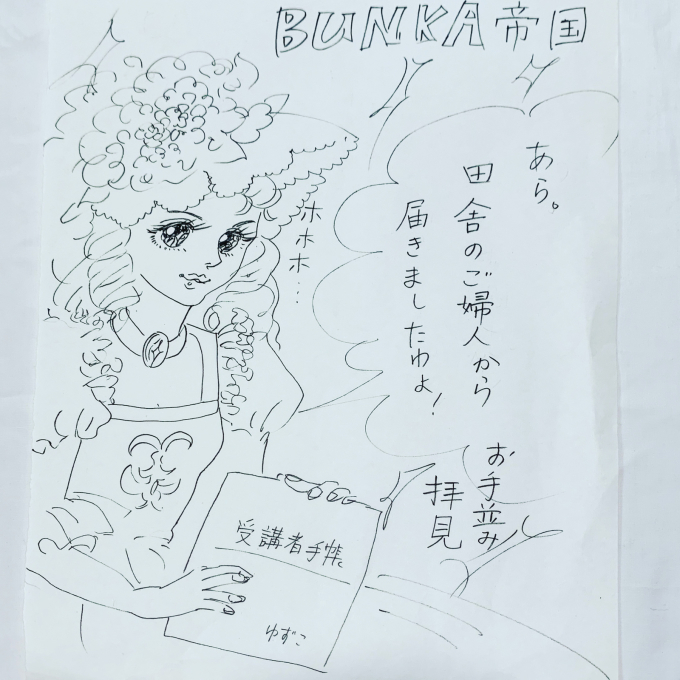 BUNKA帝国
あら。
田舎のご婦人から
届きましたわよ!
ホホホ…
お手並み
拝見
受講者手帳
ゆずこ